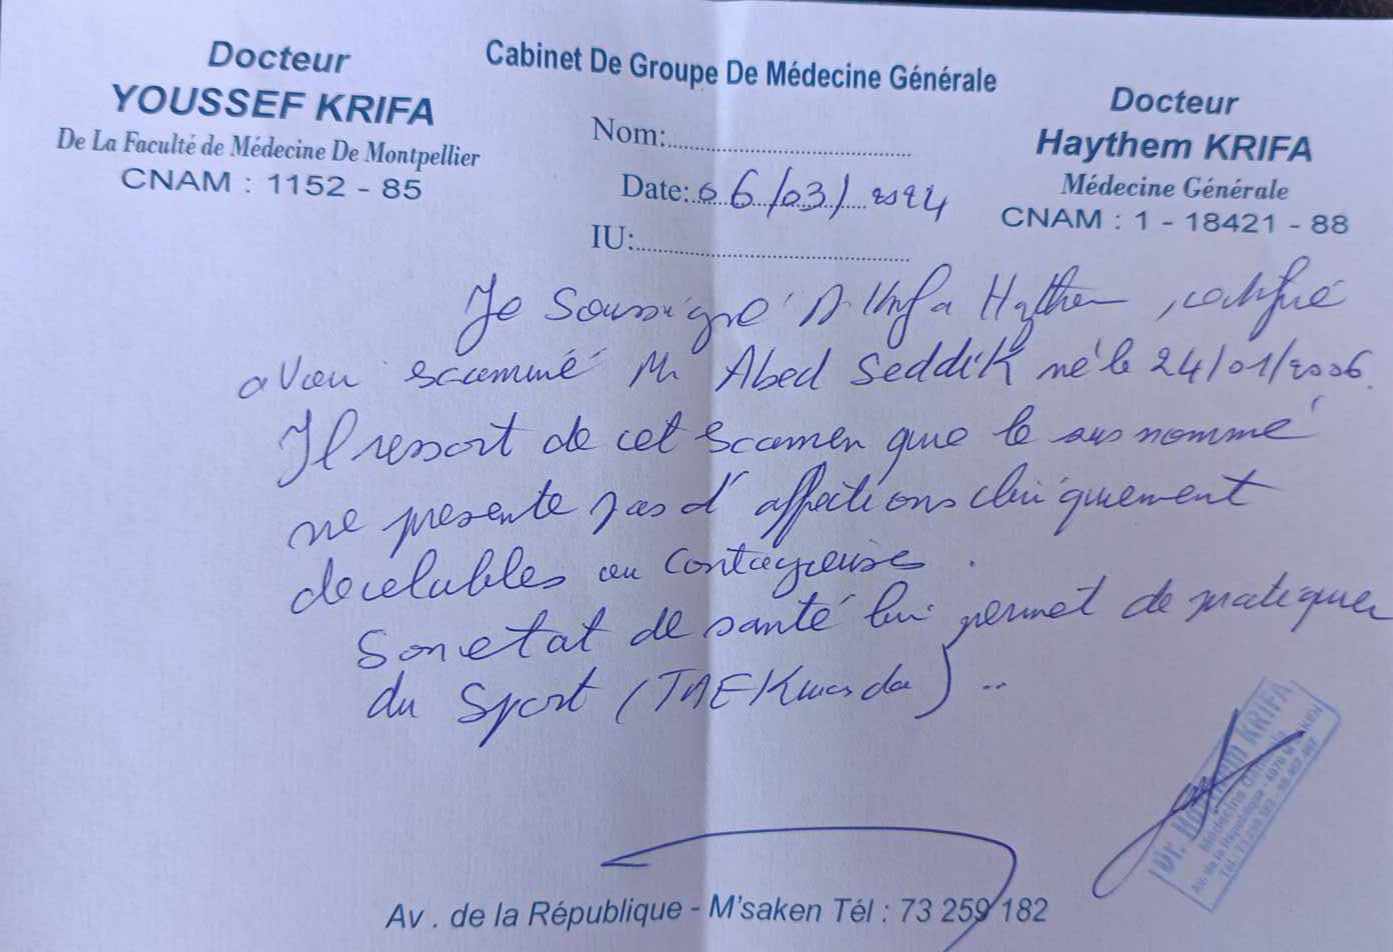 Docteur
YOUSSEF KRIFA
De La Faculté de Médecine De Montpellier
CNAM : 1152 - 85
Cabinet De Groupe De Médecine Générale
Nom:
Date: 06/03/2024
IU:
Docteur
Haythem KRIFA
Médecine Générale
CNAM : 1 - 18421 - 88
Je Soussigné Dr Krifa Haythem, certifié
avoir examiné Mr Abed Seddik né le 24/01/2006.
Il ressort de cet examen que le sus nommé
ne presente pas d'affections cliniquement
decelables ou contagieuses.
Son etat de santé lui permet de pratiquer
du Sport (TAEKwondo)..
Dr. Haythem KRIFA
Médecine Générale
Av. de la République - 4070 M'SAKEN
Av. de la République - M'saken Tél : 73 259 182